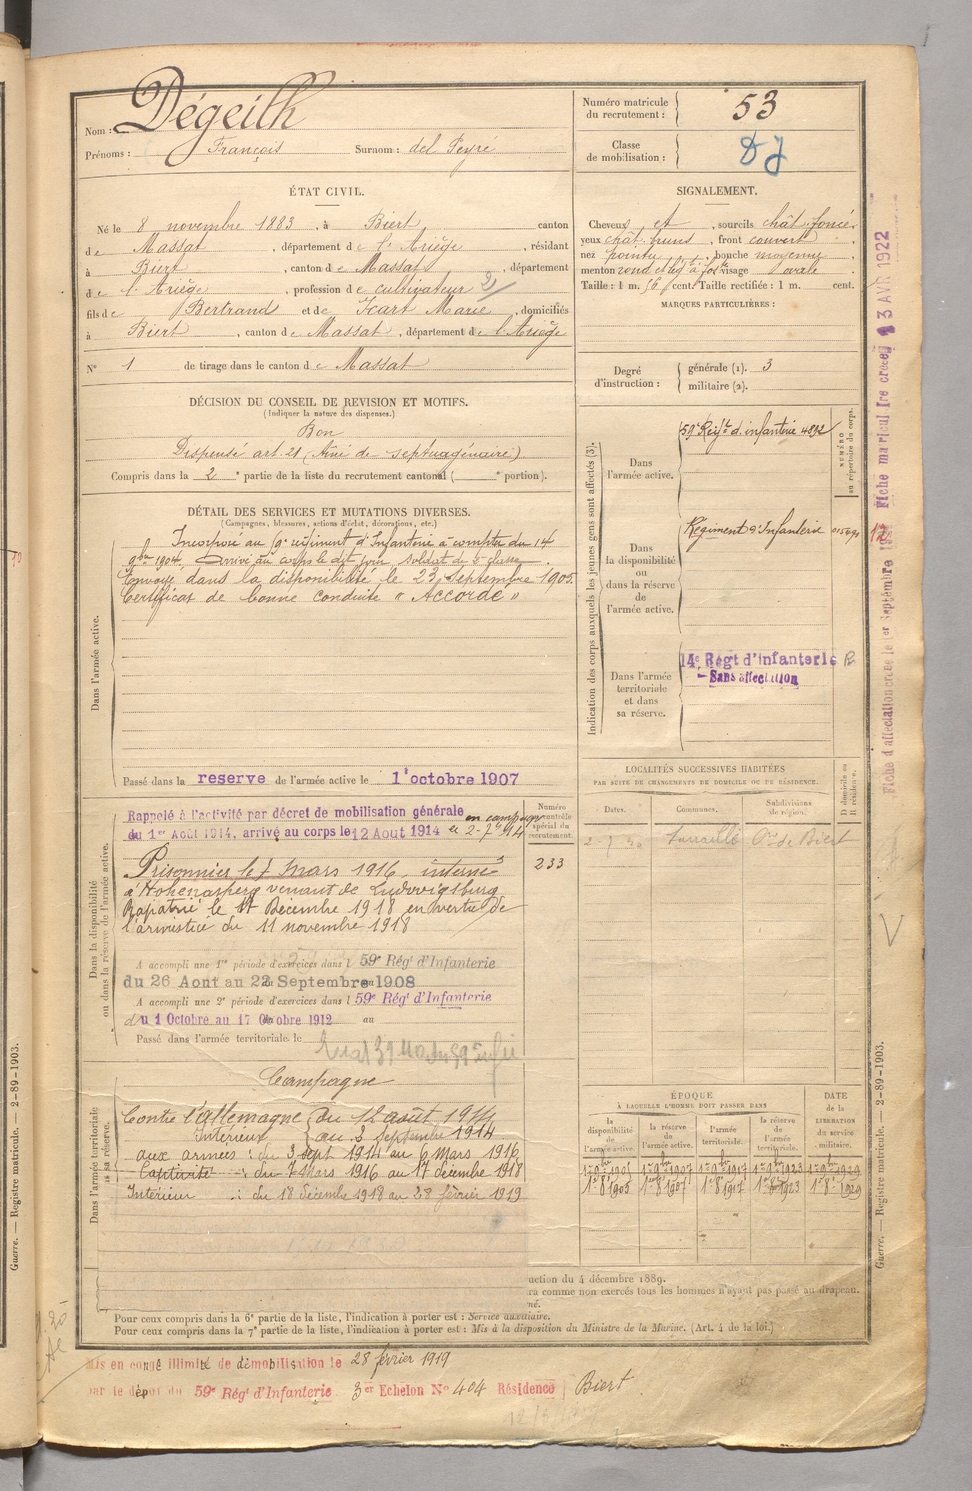 Nom : Dégeilh
Prénoms : François Surnom : del Peyré
Numéro matricule du recrutement : 53
Classe de mobilisation :
ÉTAT CIVIL.
Né le 8 novembre 1883, à Biert canton
de Massat, département de l'Ariège, résidant
à Biert, canton de Massat, département
de l'Ariège, profession de cultivateur
fils de Bertrand et de Icart Marie, domiciliés
à Biert, canton de Massat, département de l'Ariège
N° 1 de tirage dans le canton de Massat
DÉCISION DU CONSEIL DE REVISION ET MOTIFS.
(Indiquer la nature des dispenses.)
Bon
Dispensé art. 21 (Aîné de septuagénaire)
Compris dans la 2e partie de la liste du recrutement cantonal ( e portion).
DÉTAIL DES SERVICES ET MUTATIONS DIVERSES.
(Campagnes, blessures, actions d'éclat, décorations, etc.)
Incorporé au régiment d'Infanterie à compter du 14
9bre 1904, Arrivé au corps le dit jour, soldat de 2e classe.
Envoyé dans la disponibilité le 23 Septembre 1905.
Certificat de bonne conduite "Accordé"
Dans l'armée active.
Passé dans la reserve de l'armée active le 1 octobre 1907
Rappelé à l'activité par décret de mobilisation générale
du 1er Août 1914, arrivé au corps le 12 Aout 1914
Numéro au contrôle spécial du recrutement.
233
Prisonnier le 7 mars 1916, interné
à Hohenasperg venant de Ludwigsburg
Rapatrié le 17 Décembre 1918 en vertu de
l'armistice du 11 novembre 1918
Dans la disponibilité ou dans la réserve de l'armée active.
A accompli une 1re période d'exercices dans l 59e Régt d'Infanterie
du 26 Aout au 22 Septembre 1908
A accompli une 2e période d'exercices dans l 59e Régt d'Infanterie
du 1 Octobre au 17 Octobre 1912 au
Passé dans l'armée territoriale le
Campagne
Contre l'allemagne du 12 août 1914
Intérieur au 3 septembre 1914
aux armées : du 3 sept 1914 au 6 mars 1916
Captivité : du 7 Mars 1916 au 17 décembre 1918
Intérieur : du 18 décembre 1918 au 28 février 1919
Dans l'armée territoriale
sa réserve.
SIGNALEMENT.
Cheveux et, sourcils chât. foncé,
yeux chât., front couvert,
nez pointu, bouche moyenne,
menton rond, visage ovale.
Taille : 1 m. 56 cent. Taille rectifiée : 1 m. cent.
MARQUES PARTICULIÈRES :
Degré d'instruction : générale (1). 3
militaire (2).
Indication des corps auxquels les jeunes gens sont affectés (3).
NUMÉRO au répertoire du corps.
Dans l'armée active.
59e Regt d'infanterie 4892
Dans la disponibilité ou dans la réserve de l'armée active.
Régiment d'Infanterie
Dans l'armée territoriale et dans sa réserve.
14e Régt d'Infanterie
Sans affectation
LOCALITÉS SUCCESSIVES HABITÉES
PAR SUITE DE CHANGEMENTS DE DOMICILE OU DE RÉSIDENCE.
D domicile ou R résidence.
Dates. Communes. Subdivisions de région.
ÉPOQUE
À LAQUELLE L'HOMME DOIT PASSER DANS
DATE de la LIBÉRATION du service militaire.
la disponibilité de l'armée active. la réserve de l'armée active. l'armée territoriale. la réserve de l'armée territoriale.
1er 8 1905 1er 8 1907 1er 8 1917 1er 8 1923 1er 8 1929
uction du 4 décembre 1889.
ra comme non exercés tous les hommes n'ayant pas passé au drapeau.
né.
Pour ceux compris dans la 6e partie de la liste, l'indication à porter est : Service auxiliaire.
Pour ceux compris dans la 7e partie de la liste, l'indication à porter est : Mis à la disposition du Ministre de la Marine. (Art. 4 de la loi.)
Mis en congé illimité de démobilisation le 28 février 1919
par le dépôt du 59e Régt d'Infanterie 3er Echelon No 404 Résidence Biert
Guerre. — Registre matricule. — 2-89-1903.
Guerre. — Registre matricule. — 2-89-1903.